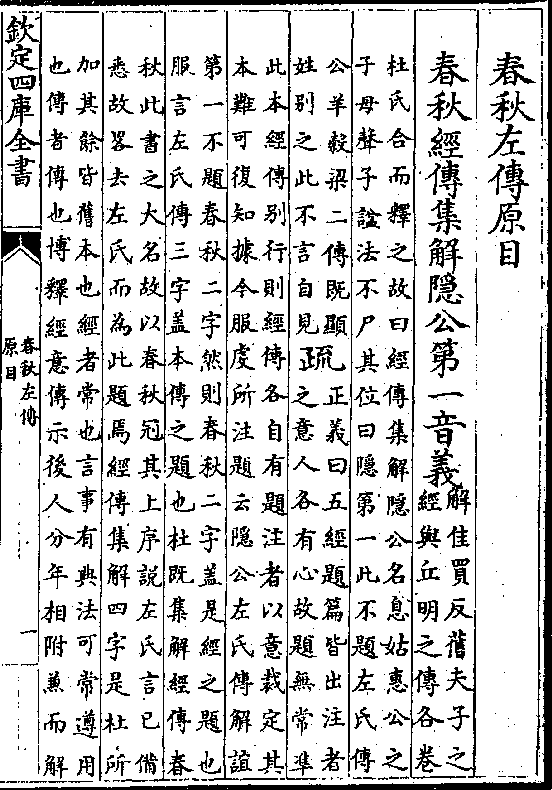 春秋左傳原目
春秋經傳集解隱公第一音義
解佳買反舊夫子之
經與丘明之傳各卷
杜氏合而釋之故曰經傳集解隱公名息姑惠公之
子母聲子諡法不尸其位曰隱第一此不題左氏傳
公羊榖梁二傳既顯
姓別之此不言自見
疏
正義曰五經題篇皆出注者
之意人各有心故題無常凖
此本經傳別行則經傳各自有題注者以意裁定其
本難可復知據今服虔所注題云隱公左氏傳解誼
第一不題春秋二字然則春秋二字盖是經之題也
服言左氏傳三字盖本傳之題也杜既集解經傳春
秋此書之大名故以春秋冠其上序說左氏言已備
悉故畧去左氏而為此題焉經傳集解四字是杜所
加其餘皆舊本也經者常也言事有典法可常遵用
也傳者傳也博釋經意傳示後人分年相附兼而解
欽定四庫全書
春秋左傳
原目
一